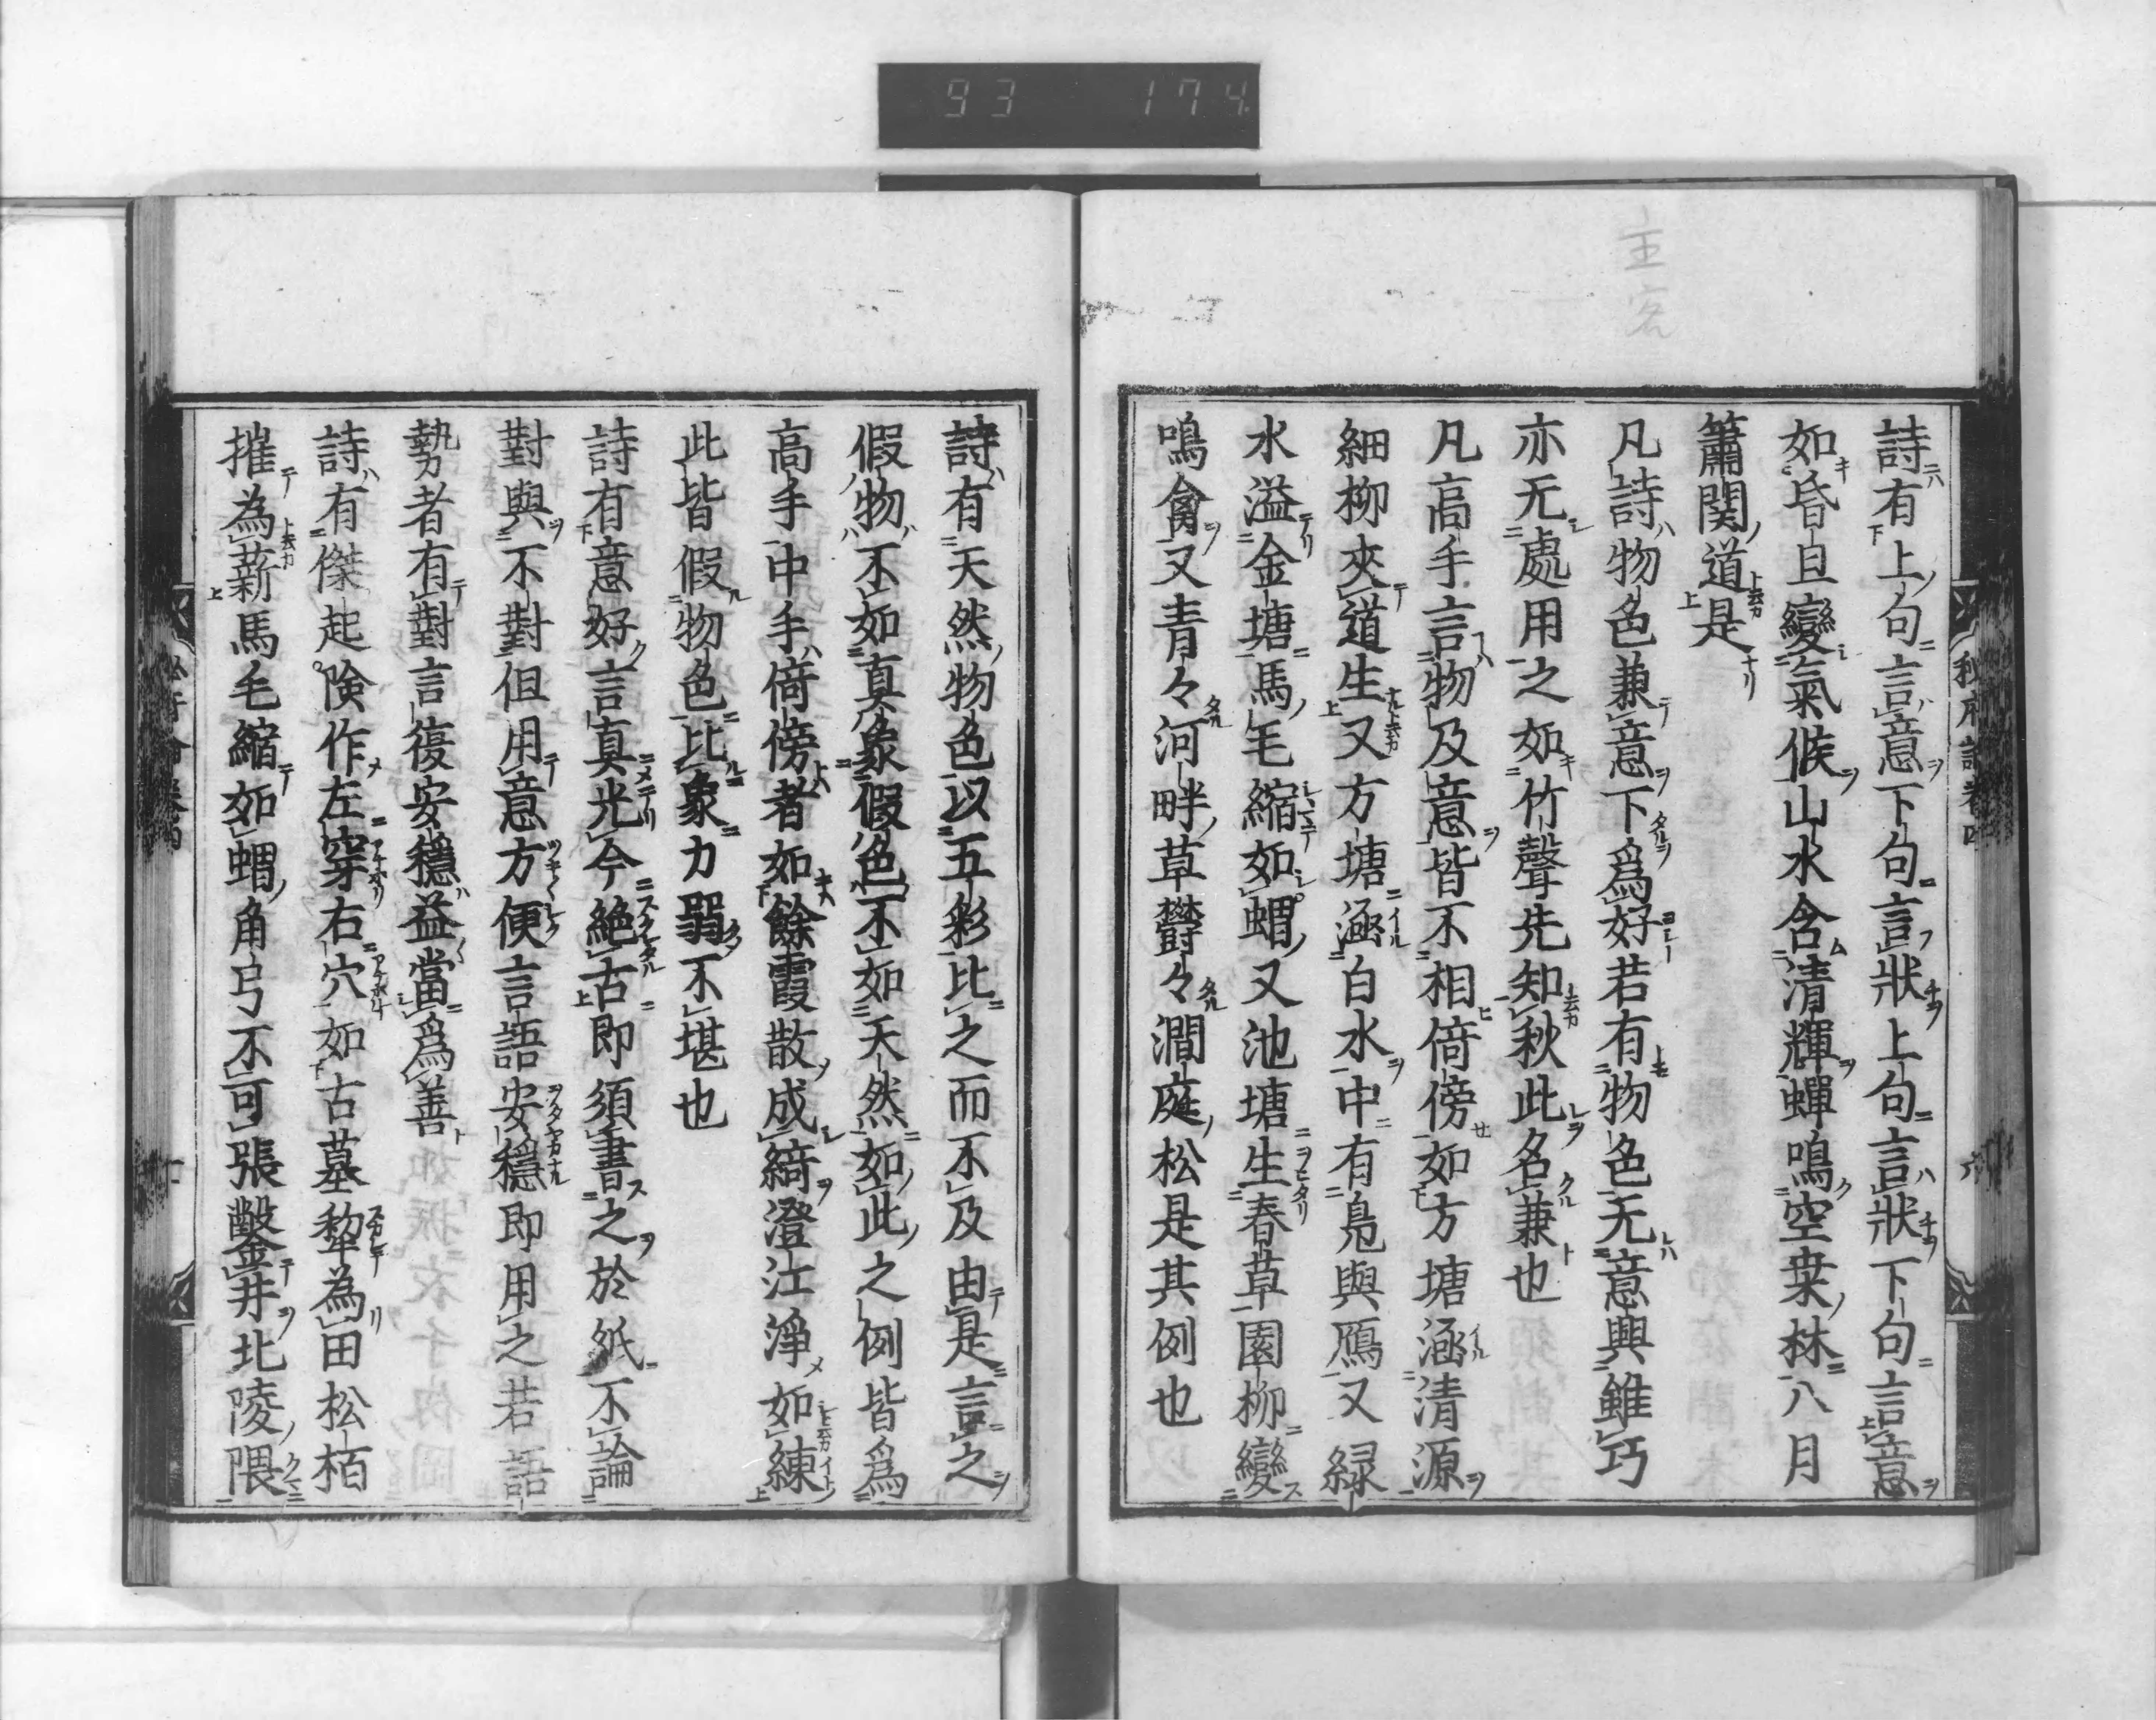 93 174
主
客
秘府論卷四 六
詩有上句言意下句言狀上句言狀下句言意
如昏旦變氣候山水含清輝蟬鳴空桒林八月
簫関道是
凡詩物色兼意下爲好若有物色无意興雖巧
亦无處用之如竹聲先知秋此名兼也
凡高手言物及意皆不相倚傍如方塘涵清源
細柳夾道生又方塘涵白水中有鳧與鴈又緑
水溢金塘馬毛縮如蝟又池塘生春草園柳變
鳴禽又青々河畔草鬱々澗庭松是其例也
詩有天然物色以五彩比之而不及由是言之
假物不如真象假色不如天然如此之例皆爲
高手中手倚傍者如餘霞散成綺澄江淨如練
此皆假物色比象力弱不堪也
詩有意好言真光今絶古即須書之於紙不論
對與不對但用意方便言語安穏即用之若語
勢者有對言復安穏益當爲善
詩有傑起険作左穿右穴如古墓犂為田松栢
摧為薪馬毛縮如蝟角弓不可張鑿井北陵隈